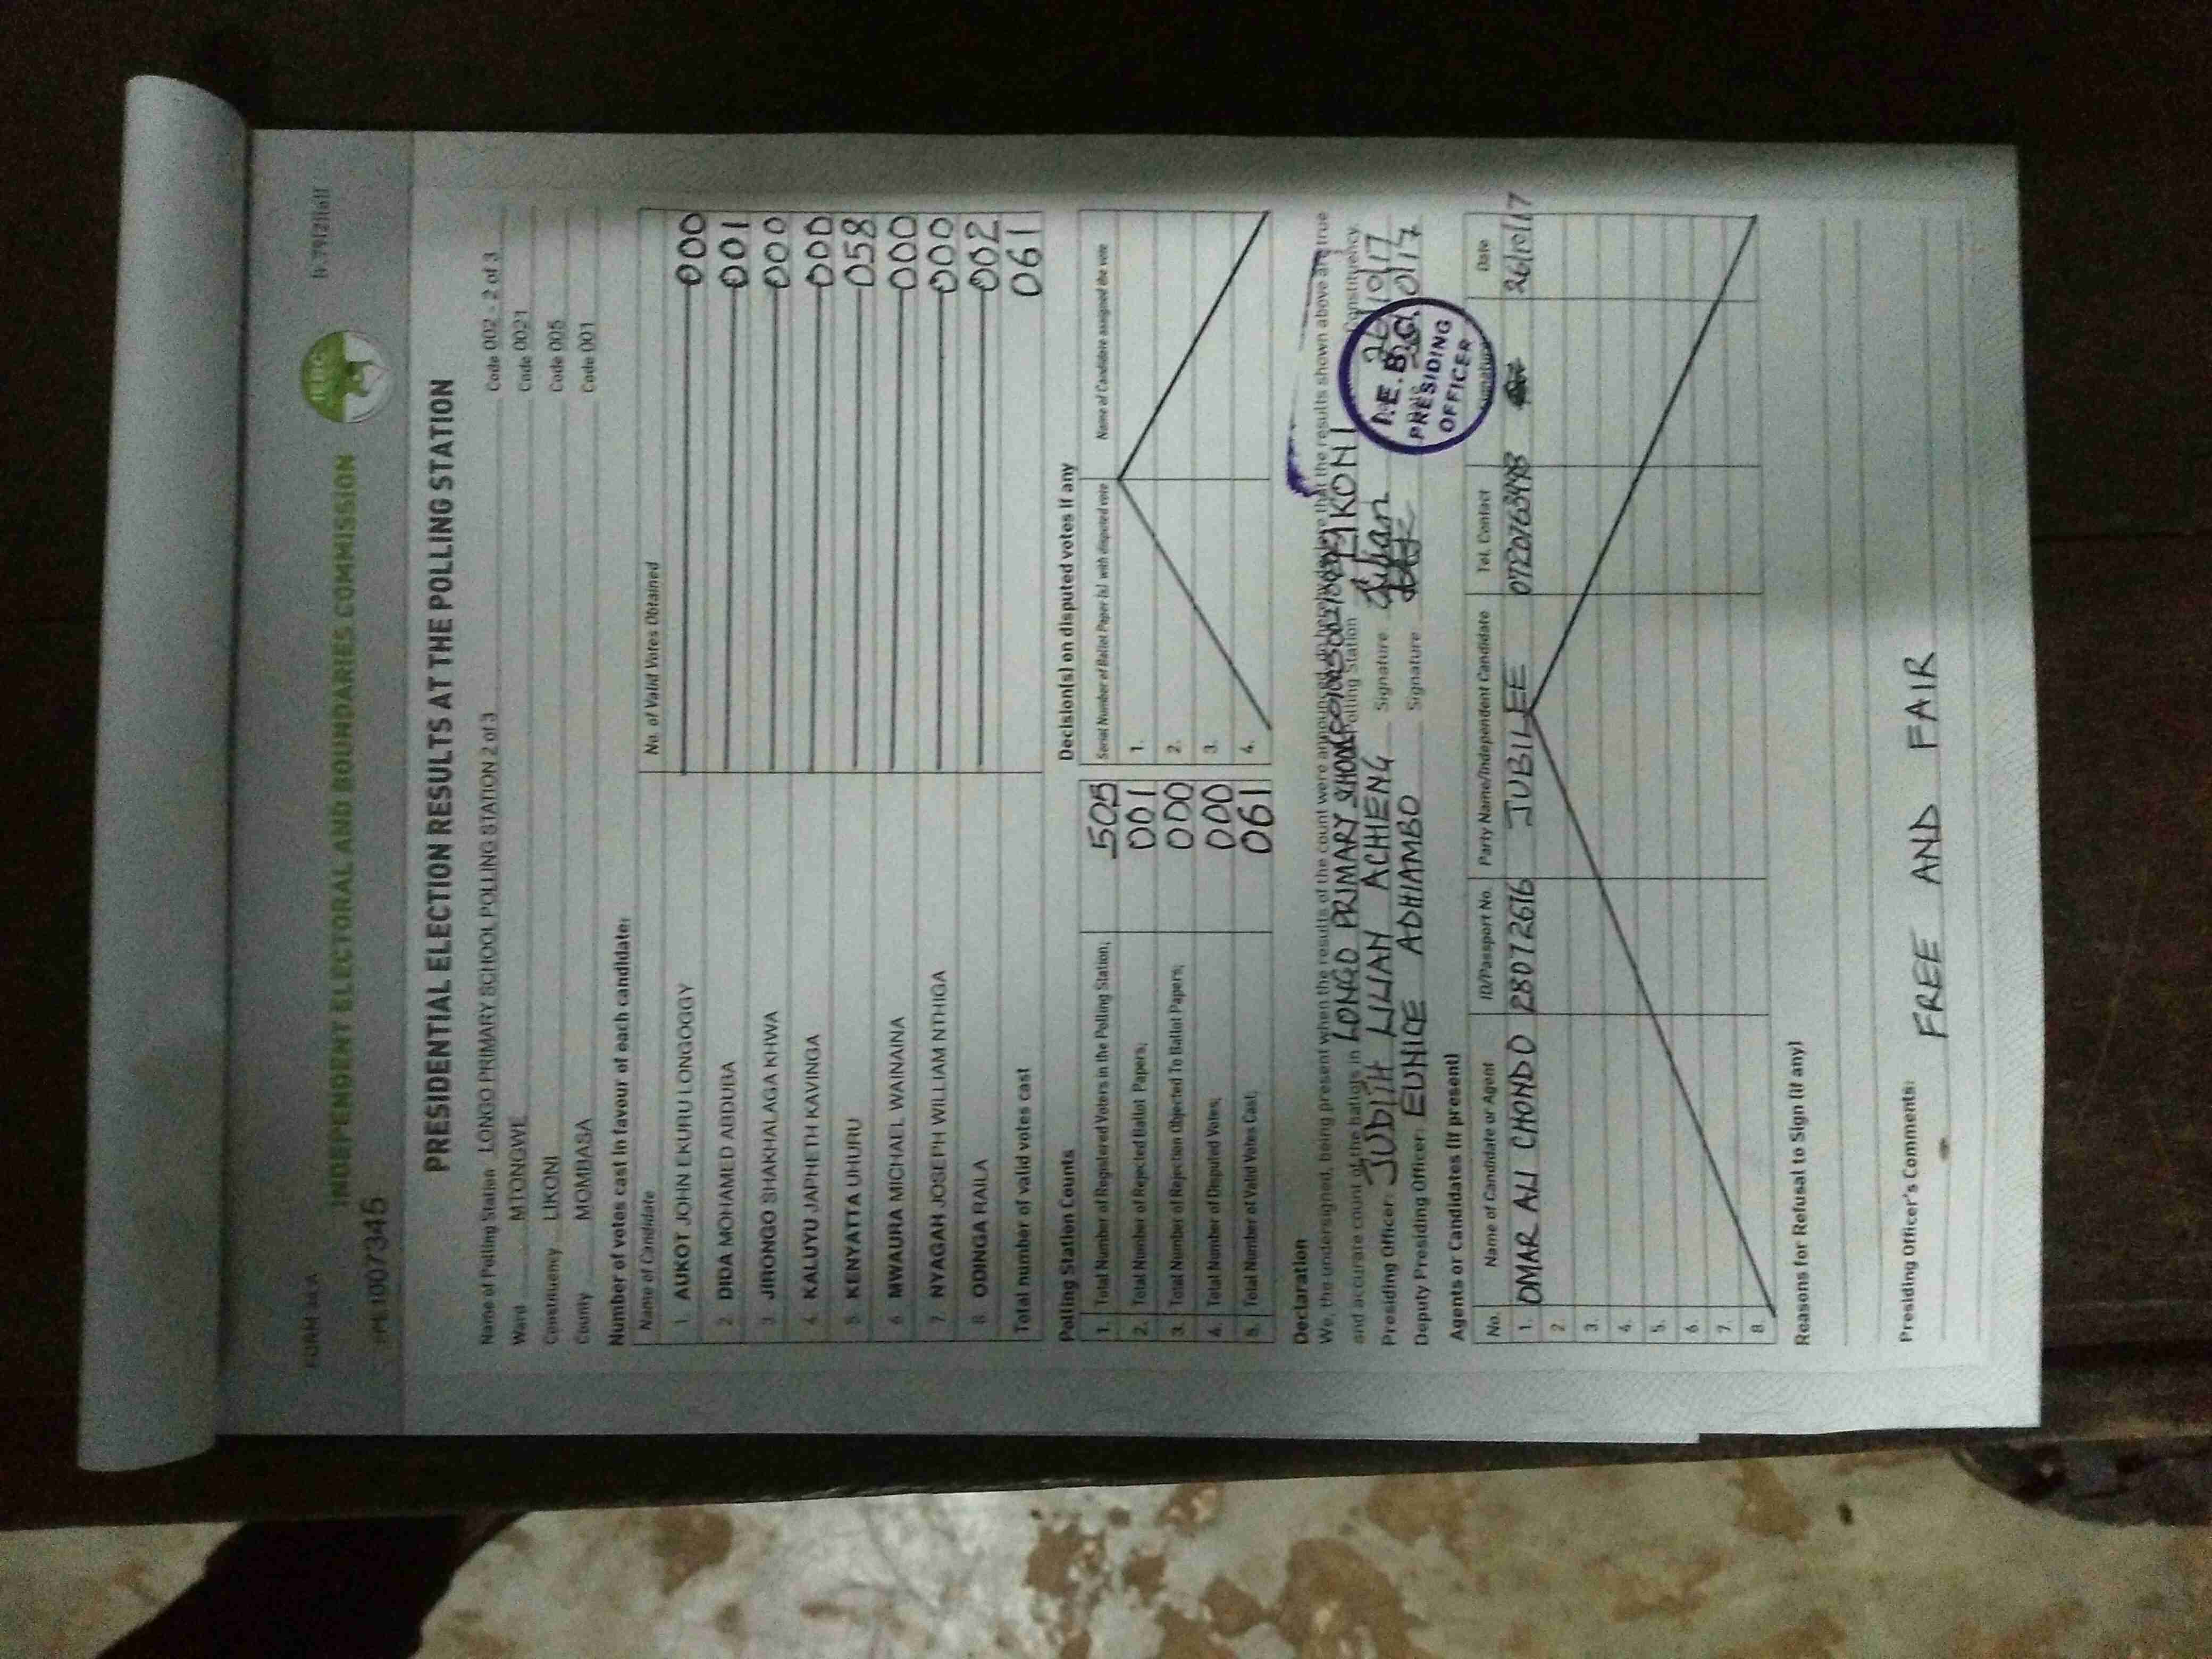 FORM 34A
INDEPENDENT ELECTORAL AND BOUNDARIES COMMISSION
IEBC
1007345
PRESIDENTIAL ELECTION RESULTS AT THE POLLING STATION
Name of Polling Station LONGO PRIMARY SCHOOL POLLING STATION 2 of 3 Code 002 - 2 of 3
Ward MTONGWE Code 0021
Constituency LIKONI Code 005
County MOMBASA Code 001
Number of votes cast in favour of each candidate:
Name of Candidate No. of Valid Votes Obtained
1. AUKOT JOHN EKURU LONGOGGY 000
2. DIDA MOHAMED ABDUBA 001
3. JIRONGO SHAKHALAGA KHWA 000
4. KALUYU JAPHETH KAVINGA 000
5. KENYATTA UHURU 058
6 MWAURA MICHAEL WAINAINA 000
7. NYAGAH JOSEPH WILLIAM NTHIGA 000
8 ODINGA RAILA 002
Total number of valid votes cast 061
Polling Station Counts
1. Total Number of Registered Voters in the Polling Station; 505
2. Total Number of Rejected Ballot Papers; 001
3. Total Number of Rejection Objected To Ballot Papers; 000
4. Total Number of Disputed Votes; 000
5. Total Number of Valid Votes Cast; 061
Decision(s) on disputed votes if any
Serial Number of Ballot Paper (s) with disputed vote Name of Candidate assigned the vote
1.
2.
3.
4.
Declaration
We, the undersigned, being present when the results of the count were announced, do hereby declare that the results shown above are true
and accurate count of the ballots in LONGO PRIMARY SHOOL Polling Station LIKONI Constituency.
Presiding Officer: JUDITH LILIAN ACHIENG Signature Lilian 26/10/17
Deputy Presiding Officer: EUNICE ADHIAMBO Signature
I.E.B.C.
PRESIDING
OFFICER
Agents or Candidates (if present)
No. Name of Candidate or Agent ID/Passport No. Party Name/Independent Candidate Tel. Contact Signature Date
1. OMAR ALI CHONDO 28072616 JUBILEE 0720763498 26/10/17
2.
3.
4.
5.
6.
7.
8.
Reasons for Refusal to Sign (if any)
Presiding Officer's Comments:
FREE AND FAIR